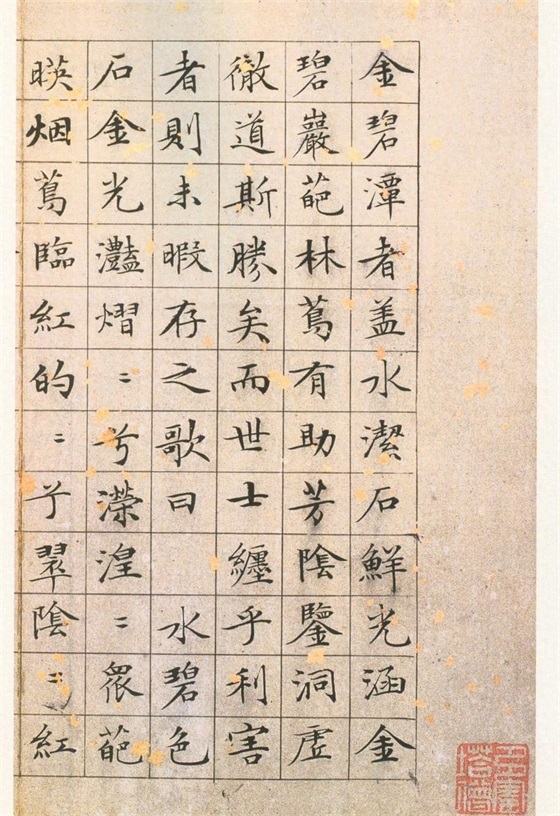 金碧潭者盖水潔石鮮光涵金
碧巖葩林蔦有助芳陰鑒洞虛
徹道斯勝矣而世士纏乎利害
者則未暇存之歌曰 水碧色
石金光灩熠〻兮濚湟〻衆葩
暎烟蔦臨紅的〻兮翠陰〻紅